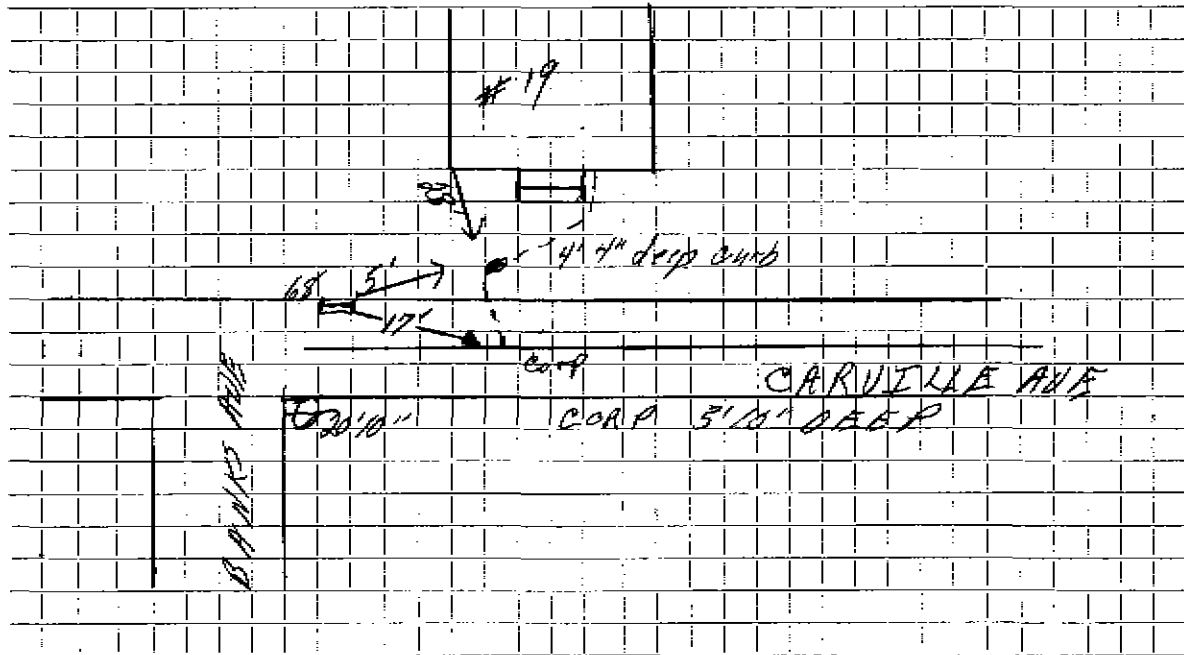 # 19
4' 4" deep curb
68'
5'
17'
Corp
CARVILLE AVE
20'10"
CORP 5'10" DEEP
BANKS AVE